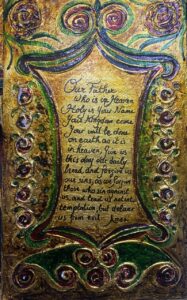 Our Father
Who is in Heaven
Holy is Your Name
Your Kingdom come
Your will be done
on earth as it is
in heaven, Give us
this day our daily
bread, and forgive us
our sins, as we forgive
those who sin against
us, and lead us not into
temptation but deliver
us from evil - Amen